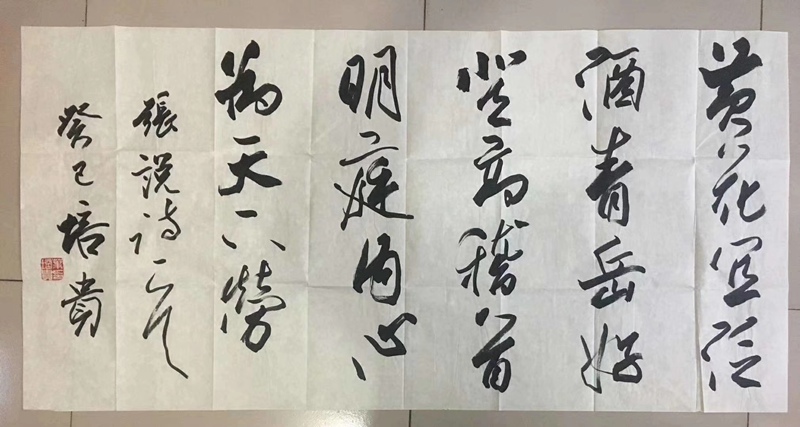 黄花宜泛
酒青岳好
登高稽首
明庭内心
為天下勞
張説詩一首
癸巳培貴